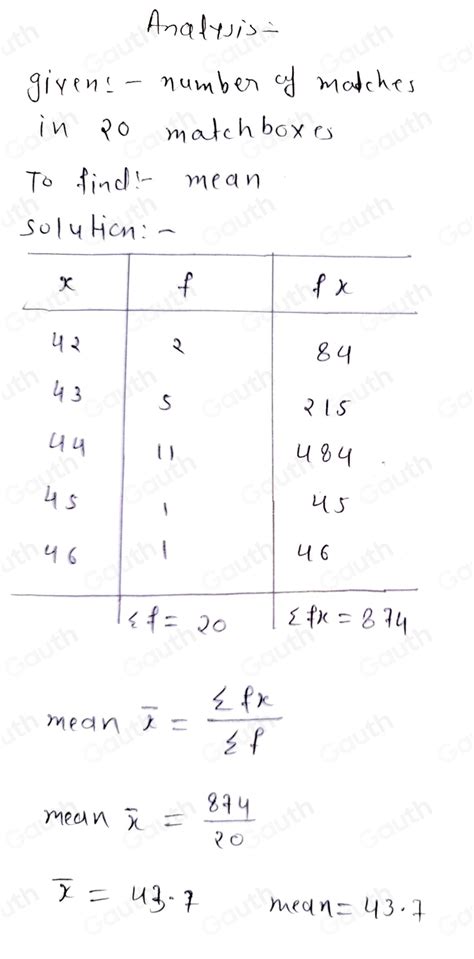 Analysis -
given: - number of matches
in 20 matchboxes
To find: - mean
solution: -
x f fx
42 2 84
43 5 215
44 11 484
45 1 45
46 1 46
Σf = 20 Σfx = 874
mean x̄ = Σfx / Σf
mean x̄ = 874 / 20
x̄ = 43.7 mean = 43.7